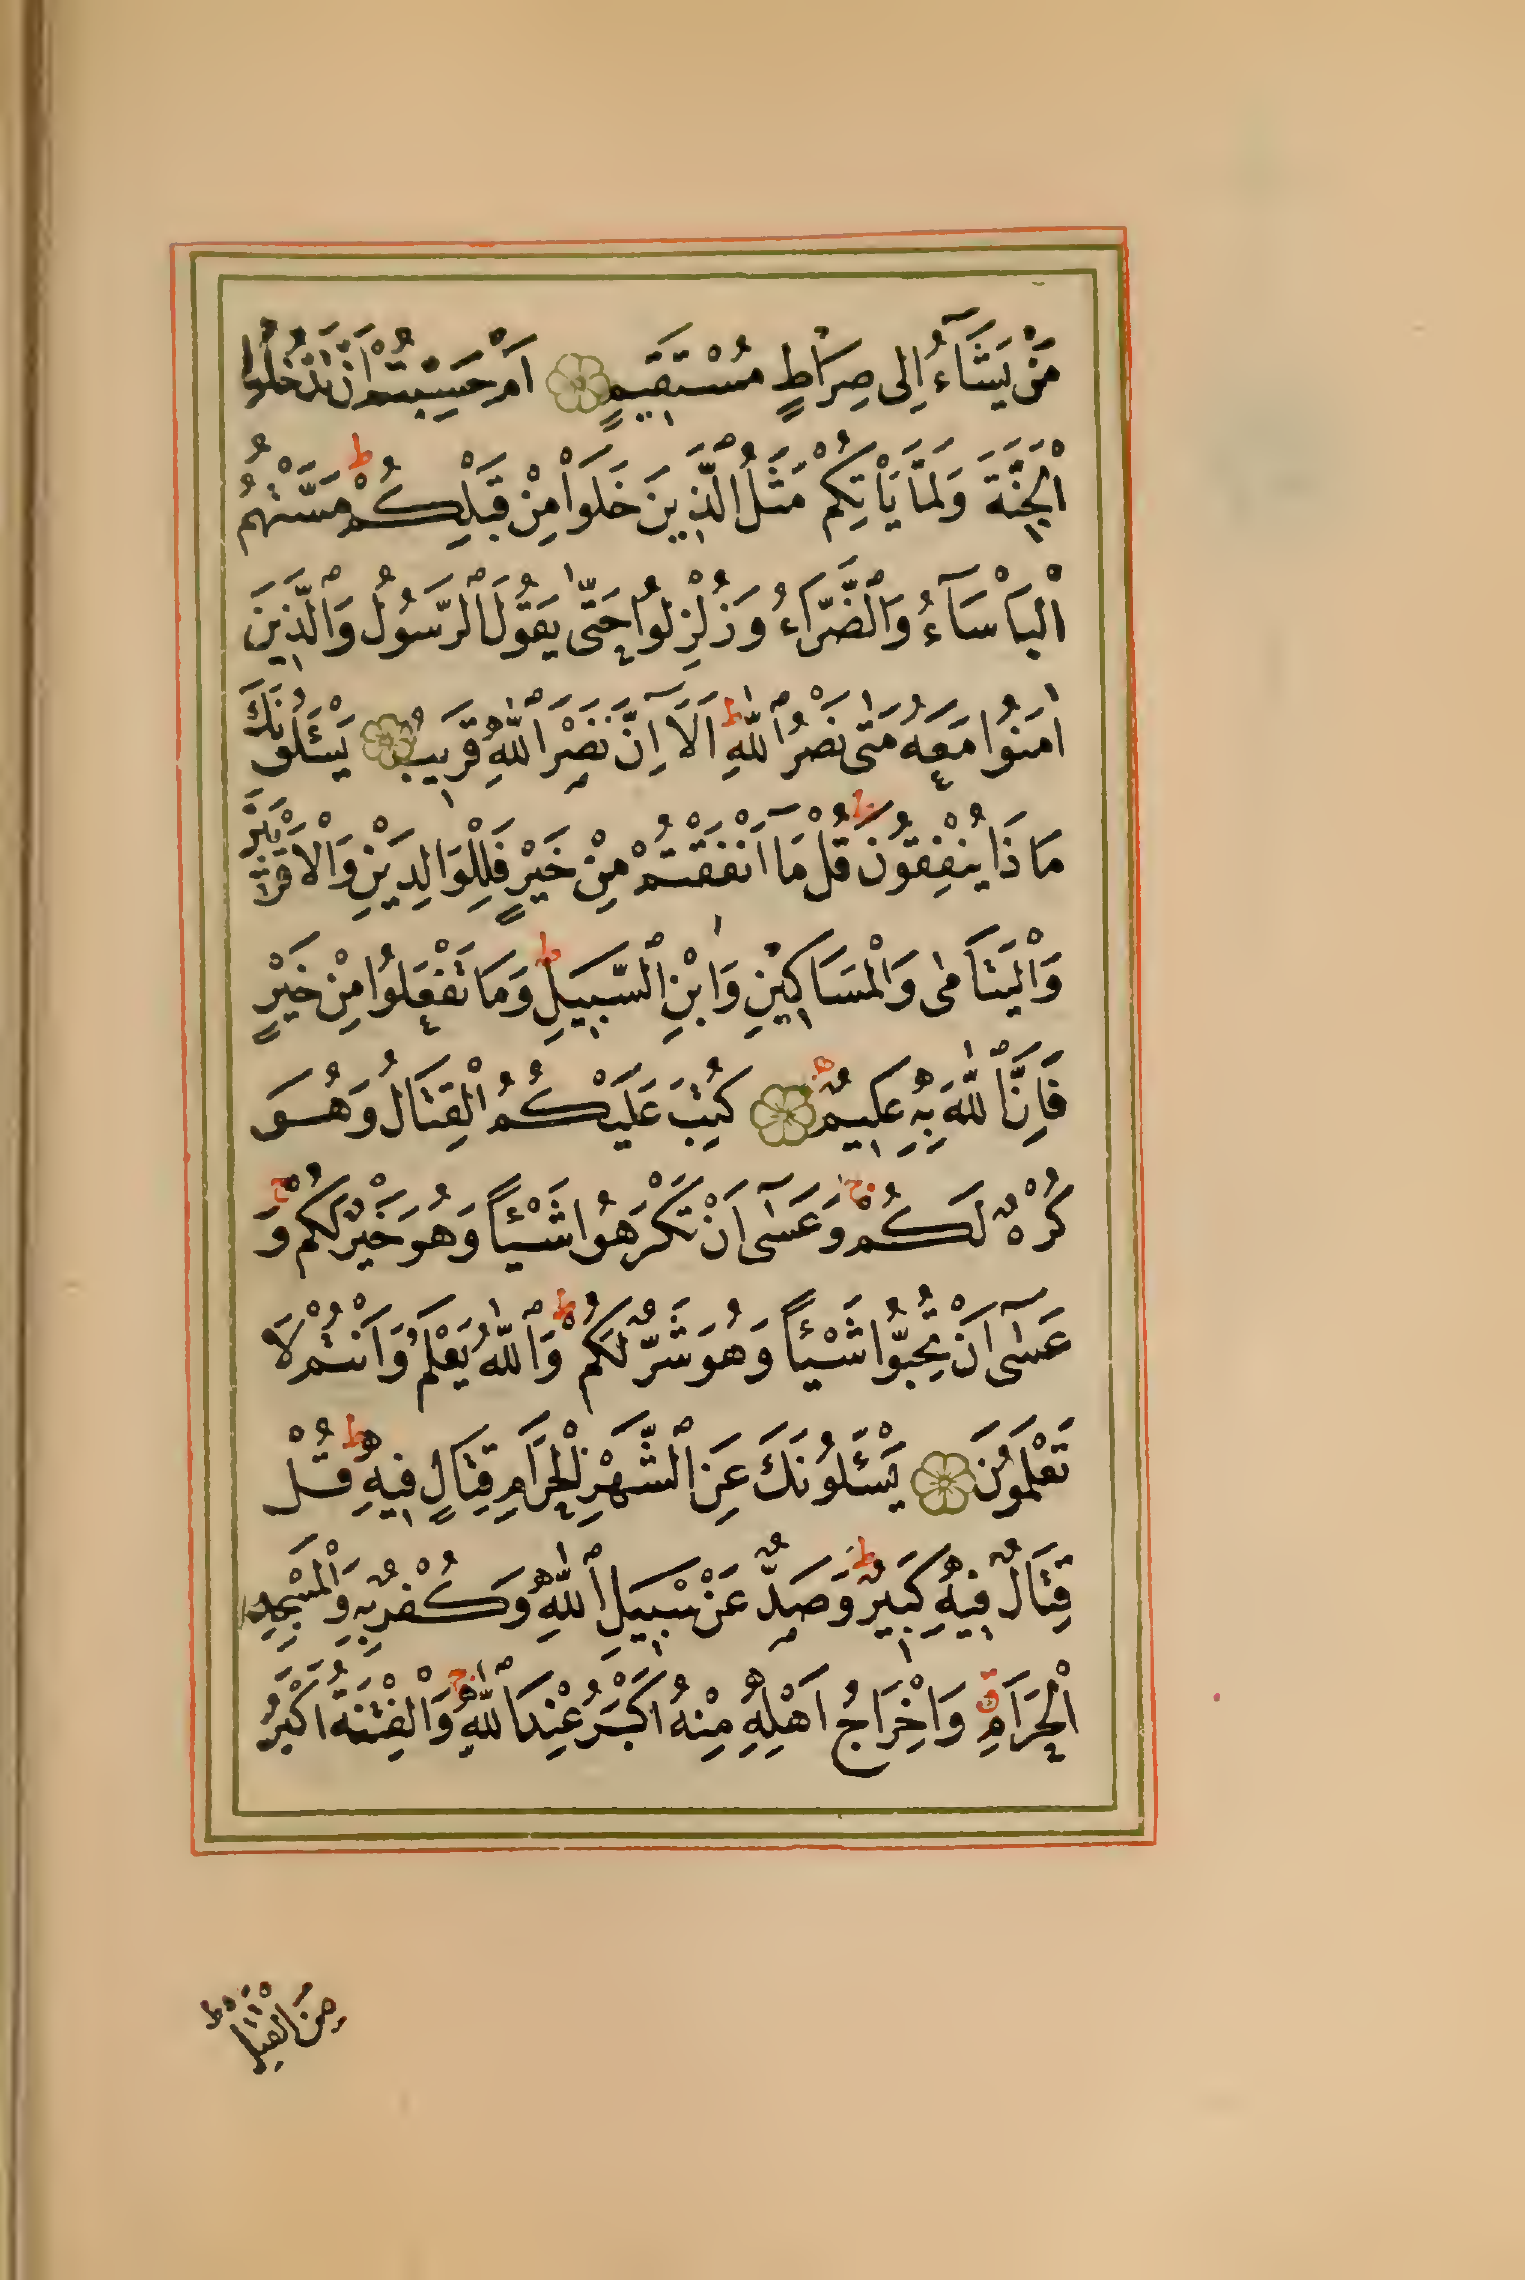 مَنْ يَشَآءُ اِلٰى صِرَاطٍ مُسْتَقِيمٍ اَمْ حَسِبْتُمْ اَنْ تَدْخُلُوا
الْجَنَّةَ وَلَمَّا يَاْتِكُمْ مَثَلُ الَّذِينَ خَلَوْا مِنْ قَبْلِكُمْ ط مَسَّتْهُمُ
الْبَاْسَآءُ وَالضَّرَّآءُ وَزُلْزِلُوا حَتّٰى يَقُولَ الرَّسُولُ وَالَّذِينَ
اٰمَنُوا مَعَهُ مَتٰى نَصْرُ اللّٰهِ ط اَلَآ اِنَّ نَصْرَ اللّٰهِ قَرِيبٌ يَسْـَٔلُونَكَ
مَاذَا يُنْفِقُونَ ط قُلْ مَآ اَنْفَقْتُمْ مِنْ خَيْرٍ فَلِلْوَالِدَيْنِ وَالْاَقْرَبِينَ
وَالْيَتَامٰى وَالْمَسَاكِينِ وَابْنِ السَّبِيلِ ط وَمَا تَفْعَلُوا مِنْ خَيْرٍ
فَاِنَّ اللّٰهَ بِهِ عَلِيمٌ كُتِبَ عَلَيْكُمُ الْقِتَالُ وَهُوَ
كُرْهٌ لَكُمْ ج وَعَسٰٓى اَنْ تَكْرَهُوا شَيْـًٔا وَهُوَ خَيْرٌ لَكُمْ ج وَ
عَسٰٓى اَنْ تُحِبُّوا شَيْـًٔا وَهُوَ شَرٌّ لَكُمْ ط وَاللّٰهُ يَعْلَمُ وَاَنْتُمْ لَا
تَعْلَمُونَ يَسْـَٔلُونَكَ عَنِ الشَّهْرِ الْحَرَامِ قِتَالٍ فِيهِ ط قُلْ
قِتَالٌ فِيهِ كَبِيرٌ ط وَصَدٌّ عَنْ سَبِيلِ اللّٰهِ وَكُفْرٌ بِهِ وَالْمَسْجِدِ
الْحَرَامِ ق وَاِخْرَاجُ اَهْلِهِ مِنْهُ اَكْبَرُ عِنْدَ اللّٰهِ ج وَالْفِتْنَةُ اَكْبَرُ
مِنَ الْقَتْلِ ط